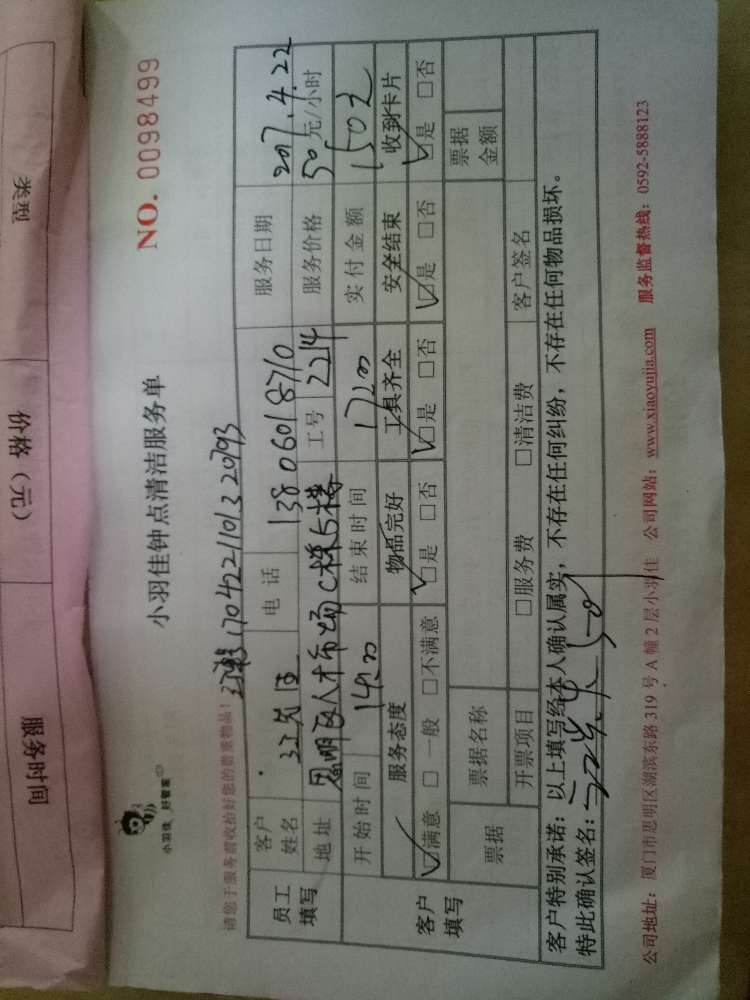 类型
价格（元）
服务时间
小羽佳 好管家
小羽佳钟点清洁服务单
NO. 0098499
请您于服务前收拾好您的贵重物品！
170422110132093
员工填写
客户姓名
先生
电话
13806018710
服务日期
2017.4.22
地址
思明区人才市场C栋5楼
工号
2214
服务价格
50元/小时
开始时间
14:00
结束时间
17:00
实付金额
150元
客户填写
服务态度
物品完好
工具齐全
安全结束
收到卡片
☑满意 □一般 □不满意
☑是 □否
☑是 □否
☑是 □否
☑是 □否
票据
票据名称
票据金额
开票项目
□服务费
□清洁费
客户签名
客户特别承诺：以上填写经本人确认属实，不存在任何纠纷，不存在任何物品损坏。
特此确认签名：
公司地址：厦门市思明区湖滨东路319号A幢2层小羽佳 公司网站：www.xiaoyujia.com 服务监督热线：0592-5888123